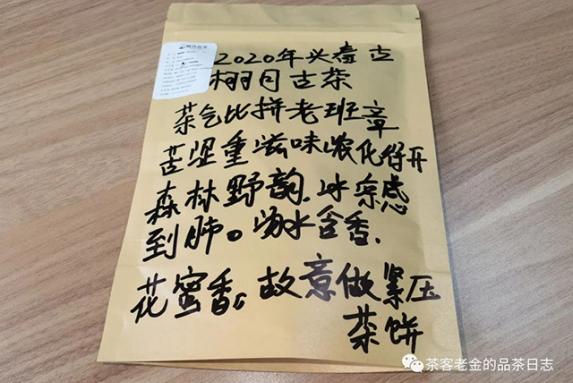 2020年头春古
树月古茶
茶气比拼老班章
苦涩重滋味浓化得开
森林野韵.冰凉感
到肺。汤水含香.
花蜜香。故意做紧压
茶饼
茶客老金的品茶日志